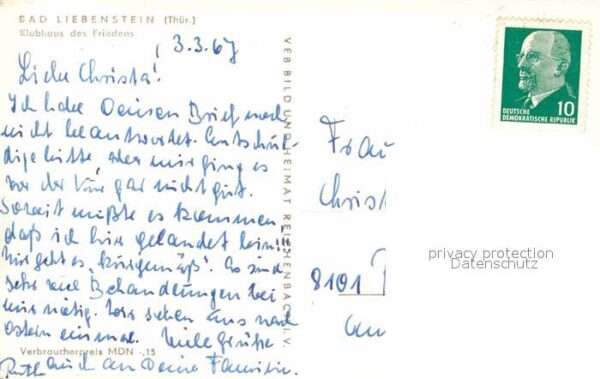 BAD LIEBENSTEIN (Thür.)
Klubhaus des Friedens
3.3.67
Liebe Christa!
Ich habe Deinen Brief noch
nicht beantwortet. Entschul-
dige bitte, aber mir ging es
vor der Kur gar nicht gut.
Soweit mußte es kommen,
daß ich hier gelandet bin!!!
Mir geht es "kurgemäß". Es sind
sehr viel Behandlungen bei
mir nötig. Wir sehen uns nach
Ostern einmal. Viele Grüße
auch an Deine Familie.
Ruth
Verbraucherpreis MDN -,15
VEB BILD UND HEIMAT REICHENBACH I. V.
DEUTSCHE
DEMOKRATISCHE REPUBLIK
10
Frau
Christ
8101
privacy protection
Datenschutz